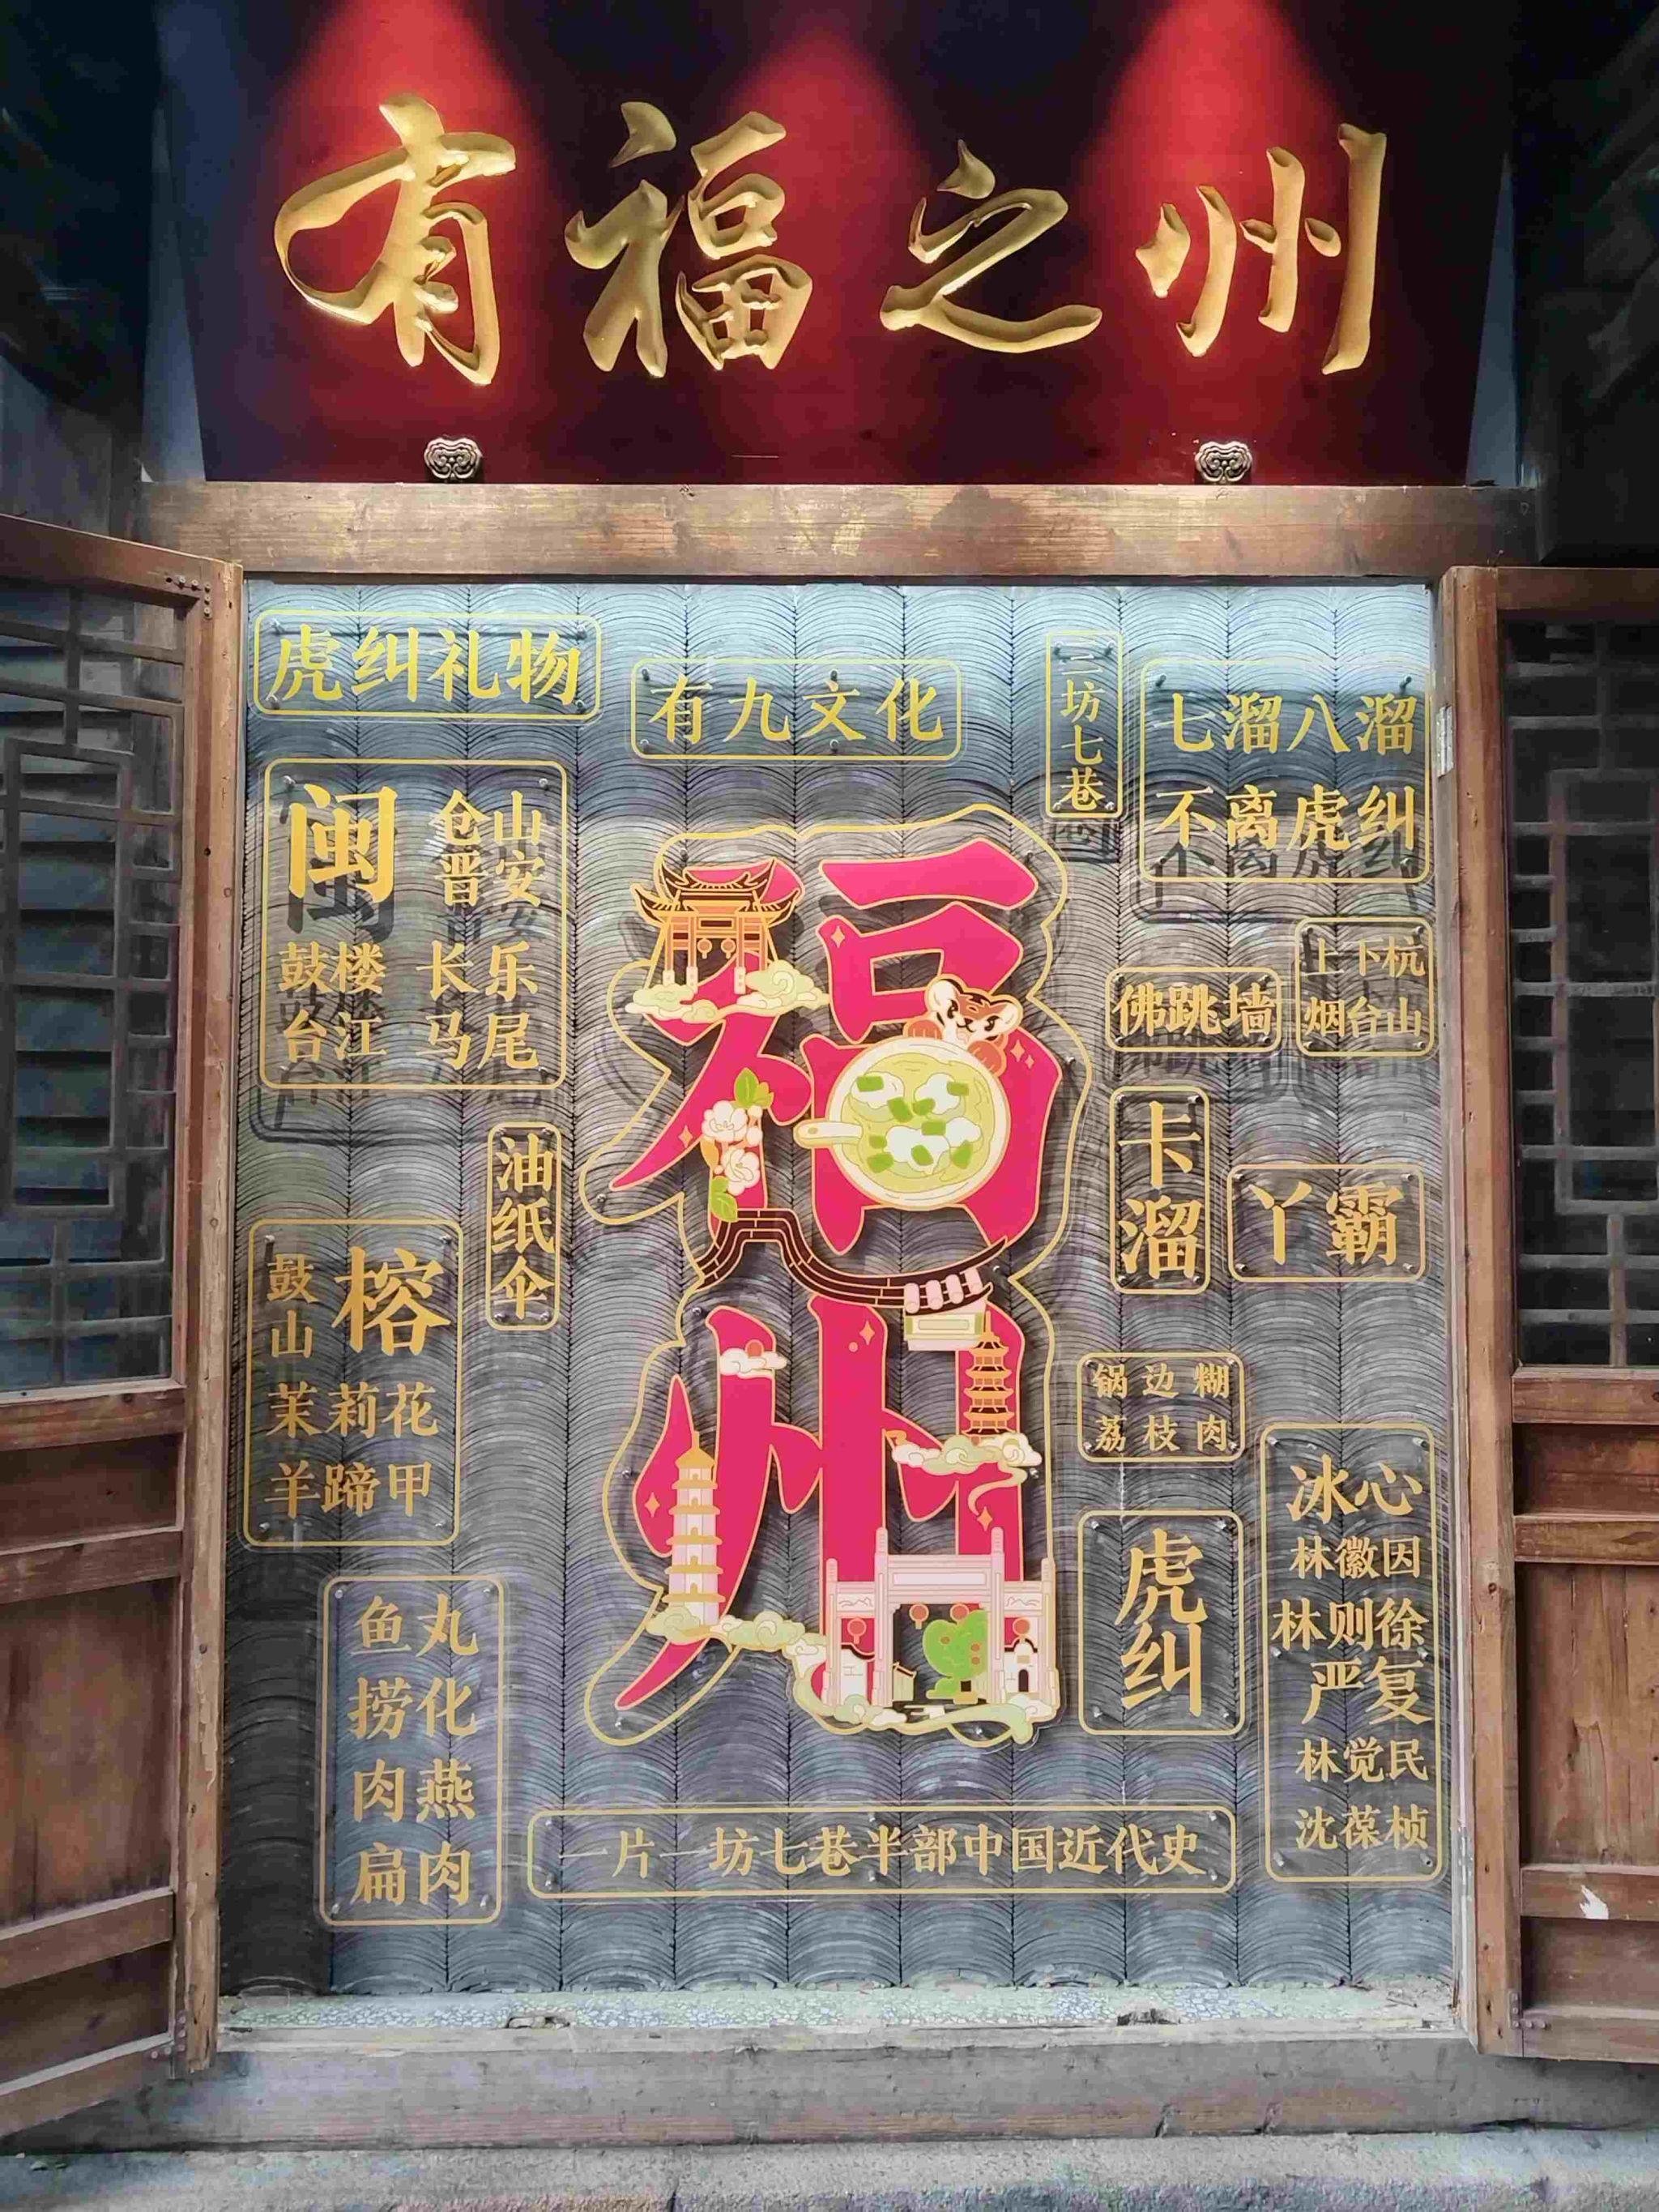 有福之州
虎纠礼物
有九文化
三坊七巷
七溜八溜
不离虎纠
闽
仓山
晋安
鼓楼 长乐
台江 马尾
福州
佛跳墙
上下杭
烟台山
油纸伞
卡溜
丫霸
鼓山
榕
茉莉花
羊蹄甲
锅边糊
荔枝肉
鱼丸
捞化
肉燕
扁肉
虎纠
冰心
林徽因
林则徐
严复
林觉民
沈葆桢
一片三坊七巷半部中国近代史